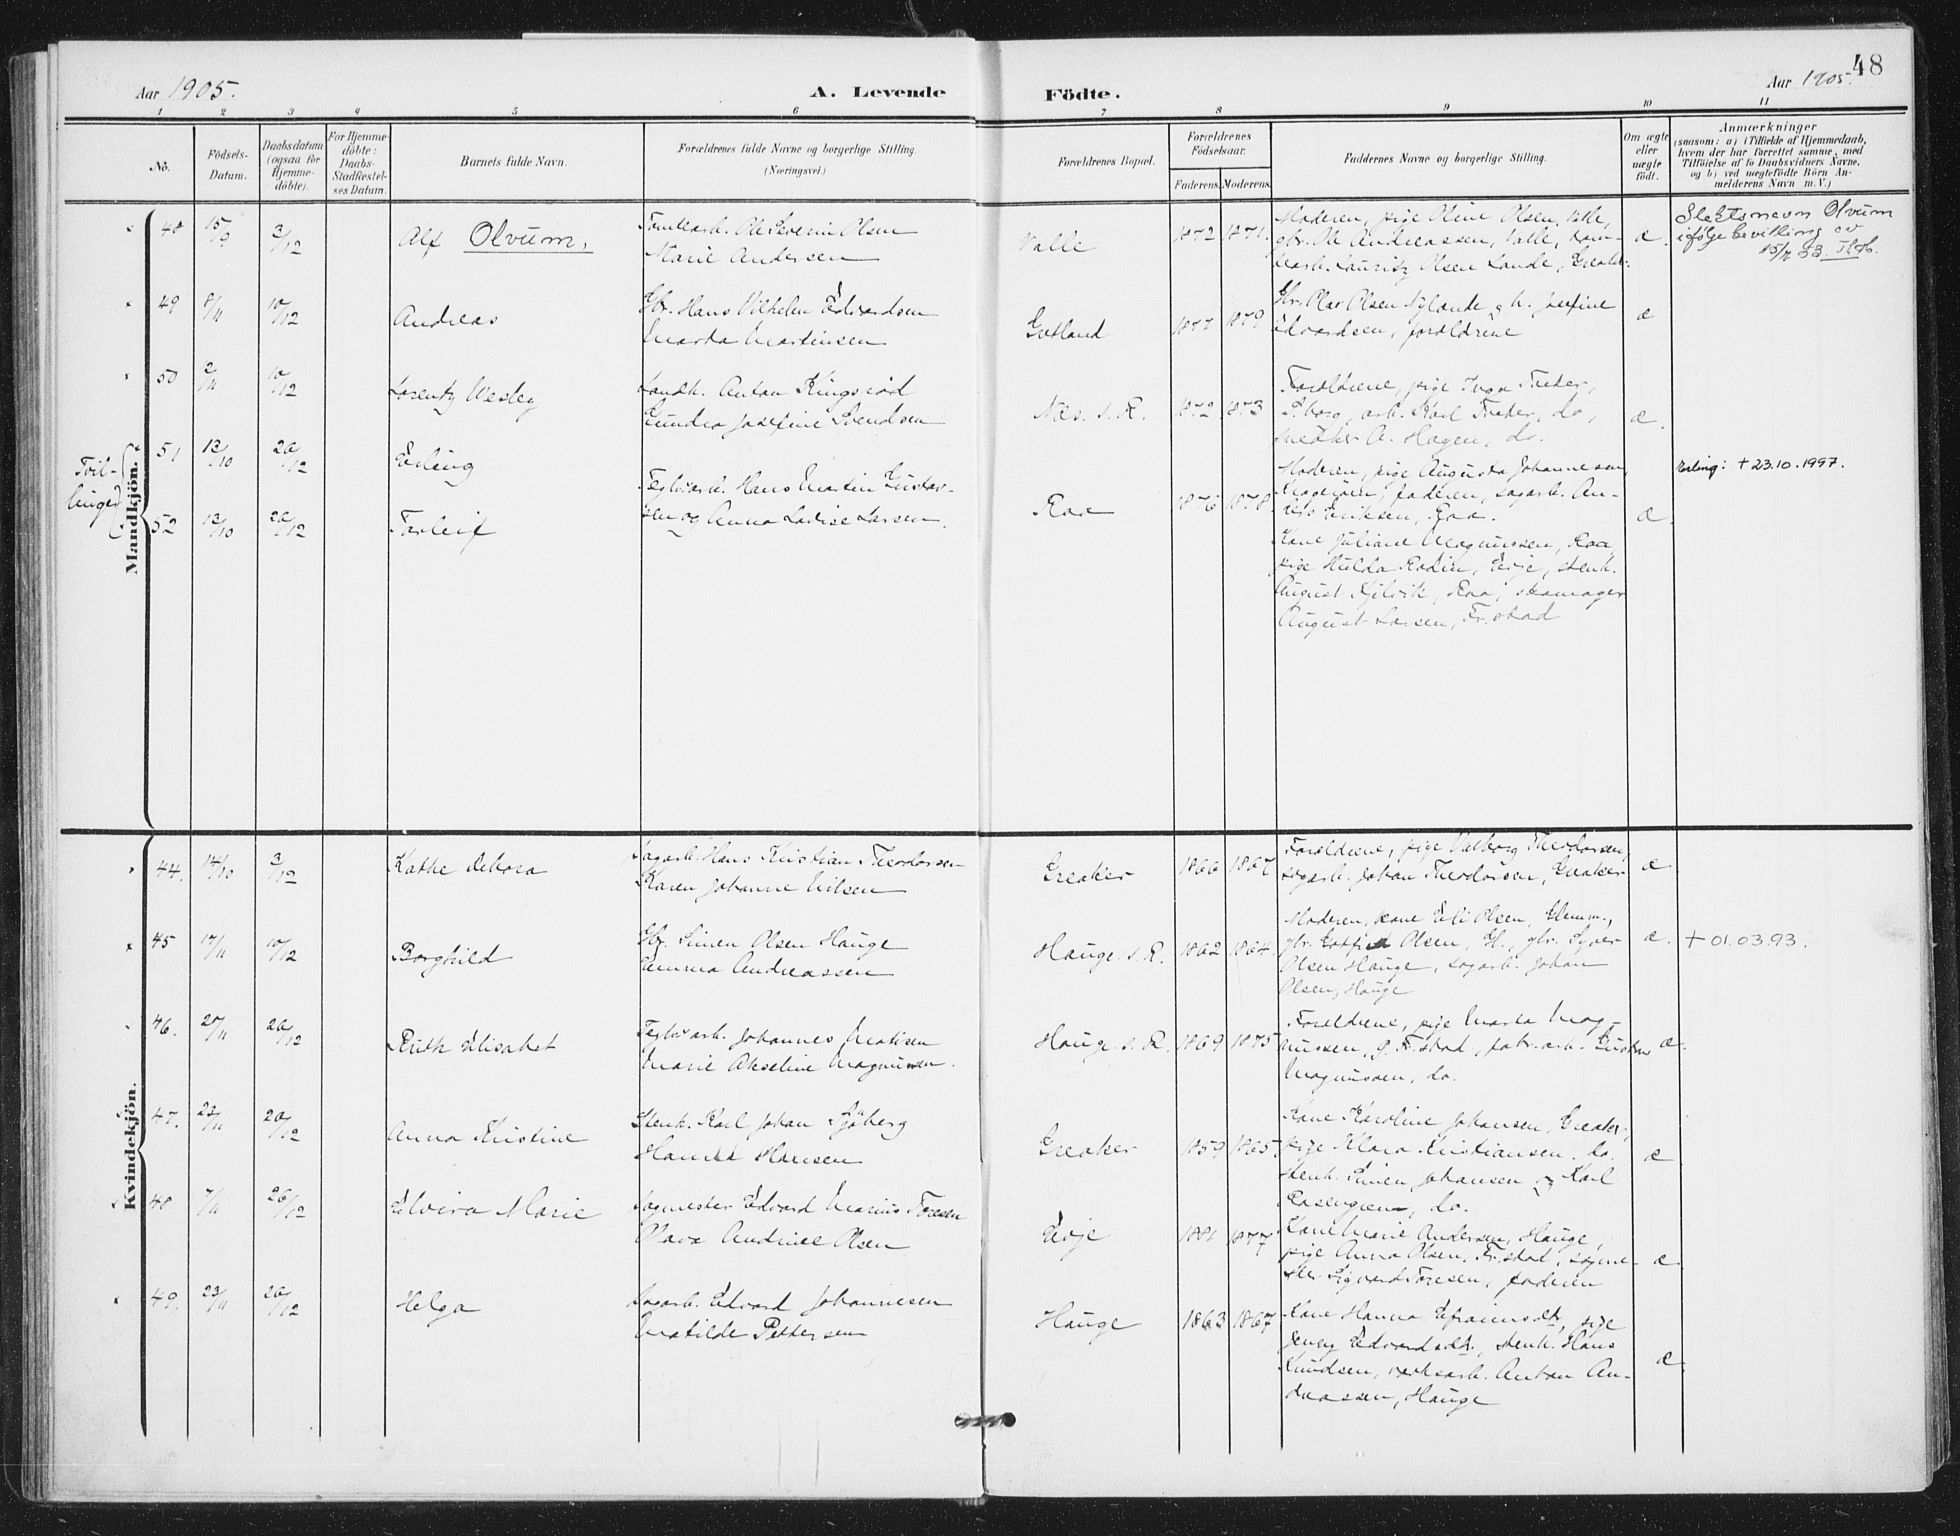 48
Aar 1905.
A. Levende
Födte.
Aar 1905.
1 2 3 4 5 6 7 8 9 10 11
No.
Födsels-
Datum.
Daabsdatum
(ogsaa for
Hjemme-
döbte).
For Hjemme-
döbte:
Daabs-
Stadfæstel-
ses Datum.
Barnets fulde Navn.
Forældrenes fulde Navne og borgerlige Stilling.
(Næringsvei.)
Forældrenes Bopæl.
Forældrenes
Födselsaar.
Faderens. Moderens.
Faddernes Navne og borgerlige Stilling.
Om ægte
eller
uægte
födt.
Anmærkninger
(saasom: a) i Tilfælde af Hjemmedaab,
hvem der har forrettet samme, med
Tilföielse af to Daabsvidners Navne,
og b) ved uægtefödte Börn An-
melderens Navn m. V.)
Mandkjön.
48 15/9 3/12 Alf Olvum,
Tomtearb. Ole Severin Olsen
Marie Andersen
Valle 1872 1871.
Moderen, pige Oline Olsen, Valle,
gbr. Ole Andreassen, Valle, tom-
tearb. Lauritz Olsen Lande, Greaker.
æ.
Slektsnavn Olvum
ifølge bevilling av
49 8/11 10/12 Andreas
Gbr. Hans Vilhelm Edvardsen
Marta Martinsen
Gretland 1877 1879
Gbr. Olav Olsen Nylande, g. h. Josefine
Edvardsen, forældrene
æ
50 2/11 10/12 Lorentz Wesley
Landh. Anton Kingsrød
Gundra Josefine Svendsen
Næs s. R. 1872 1873
Forældrene, pige Inga Tveter,
S.borg, arb. Karl Tveter, do,
snedker A. Hagen, do.
æ.
Tvil-
linger
51 13/10 26/12 Erling
52 13/10 26/12 Torleif
Teglv.arb. Hans Martin Gustav-
sen og Anna Lovise Larsen.
Raa 1876 1878.
Moderen, pige Augusta Johannesen,
faderen, sagarb. An-
ders Eriksen, Raa.
Kone Juliane Magnussen, Raa,
pige Hulda Rodin, Evje, stenh.
August Kjelvik, Raa, skomager
August Larsen, Fr.stad
æ.
Erling: + 23.10.1997.
Kvindekjön.
44. 14/10 3/12 Kathe Debora
Sagarb. Hans Kristian Theodorsen
Karen Johanne Nilsen
Greaker 1866 1867
Forældrene, pige Valborg Theodorsen,
sagarb. Johan Theodorsen, Greaker
æ
45 17/11 10/12 Borghild
Gbr. Simen Olsen Hauge
Emma Andreassen
Hauge s. R. 1862 1864
Moderen, kone Eli Olsen, Glemm.,
gbr. Gotfred Olsen, Gl., gbr. Syver
Olsen Hauge, sagarb. Johan
Olsen, Hauge
æ.
+ 01.03.93.
46. 20/11 26/12 Ruth Elisabet
Teglv.arb. Johannes Matisen
Marie Akseline Magnussen.
Hauge s. R. 1869 1875
Forældrene, pige Marta Mag-
nussen, g. Fr.stad, fabr.arb. Gustav
Magnussen, do.
æ.
47. 22/11 26/12 Anna Kristine
Stenh. Karl Johan Sjöberg
Hanna Hansen
Greaker 1859 1865
Kone Karoline Johansen, Greaker,
pige Klara Kristiansen, do.
stenh. Simen Johansen og Karl
Rosengren, do.
æ
48 7/11 26/12 Elvira Marie
Sagmester Edvard Marius Toresen
Olava Andrine Olsen
Evje 1881 1877
Kone Marie Andersen, Hauge,
pige Anna Olsen, Fr.stad, sagme-
ster Sigvard Toresen, faderen
æ.
49. 23/11 26/12 Helga
Sagarb. Edvard Johannesen
Matilde Pettersen
Hauge 1863 1867
Kone Hanna Efraimsdt., pige
Jenny Edvardsdt., stenh. Hans
Knudsen, verksarb. Anton An-
dreassen, Hauge
æ.